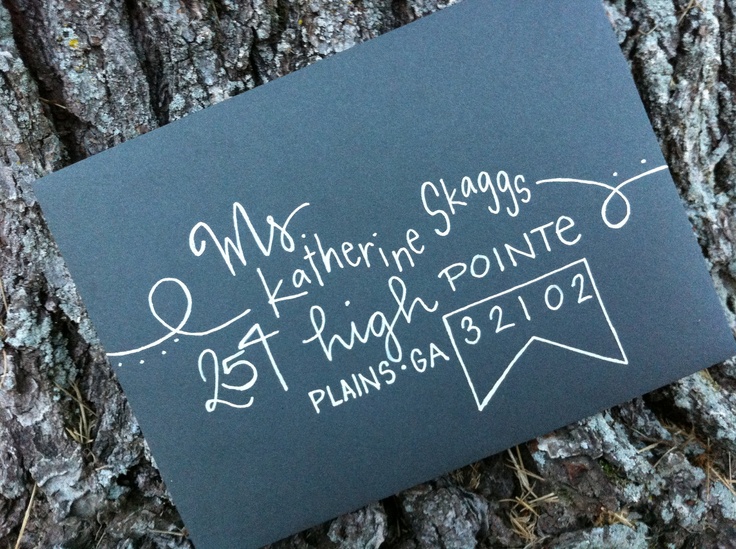 Ms.
Katherine Skaggs
254 high POINTE
PLAINS • GA 32102